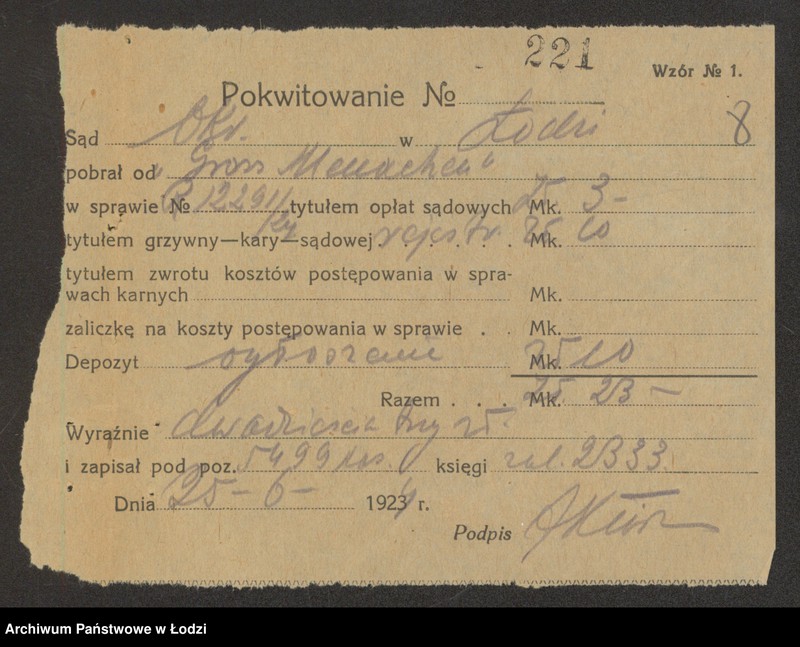 221
Wzór № 1.
Pokwitowanie №
8
Sąd Okr. w Łodzi
pobrał od "Gross Menachem"
w sprawie № 12291/24 tytułem opłat sądowych Mk. zł 3 –
tytułem grzywny—kary—sądowej rejestr. Mk. zł 10
tytułem zwrotu kosztów postępowania w spra-
wach karnych Mk.
zaliczkę na koszty postępowania w sprawie . . Mk.
Depozyt ogłoszenie Mk. zł 10
Razem . . . Mk. zł. 23 –
Wyraźnie dwadzieścia trzy zł.
i zapisał pod poz. 5499 księgi 2333
Dnia 25 – 6 – 1924 r.
Podpis
Archiwum Państwowe w Łodzi